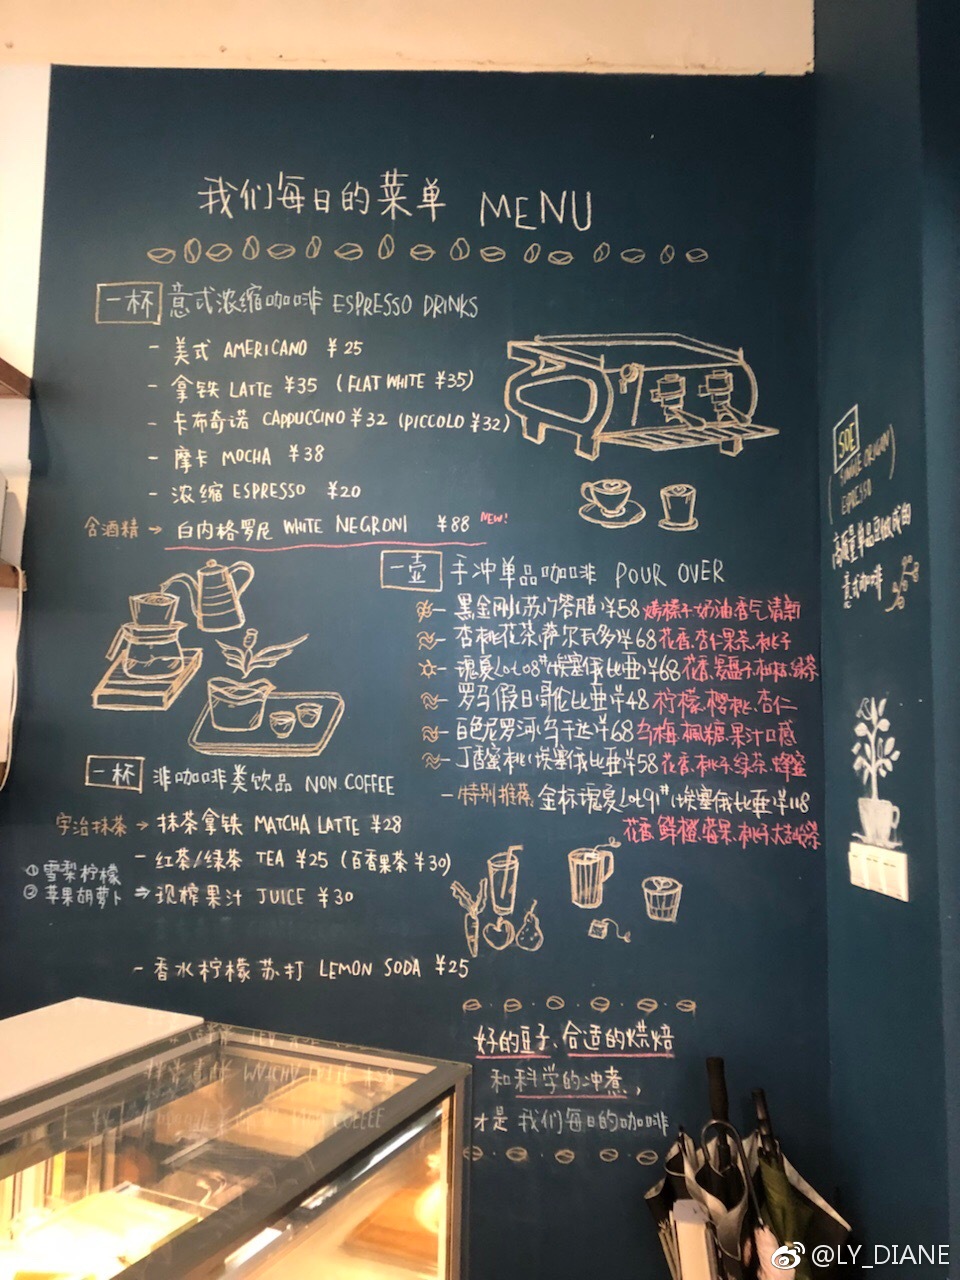 我们每日的菜单 MENU
一杯 意式浓缩咖啡 ESPRESSO DRINKS
- 美式 AMERICANO ¥25
- 拿铁 LATTE ¥35 (FLAT WHITE ¥35)
- 卡布奇诺 CAPPUCCINO ¥32 (PICCOLO ¥32)
- 摩卡 MOCHA ¥38
- 浓缩 ESPRESSO ¥20
含酒精 → 白内格罗尼 WHITE NEGRONI ¥88 NEW!
一壶 手冲单品咖啡 POUR OVER
黑金刚(苏门答腊)¥58 烤榛子.奶油.香气清新
杏桃花茶.萨尔瓦多 ¥68 花香.杏仁果茶.桃子
瑰夏Lot08#(埃塞俄比亚)¥68 花香
罗马假日哥伦比亚 ¥48 柠檬.樱桃.杏仁
白色尼罗河.乌干达 ¥68 乌梅.枫糖.果汁口感
丁香蜜桃(埃塞俄比亚)¥58 花香.桃子.绿茶.蜂蜜
- 特别推荐 金标瑰夏Lot91#(埃塞俄比亚)¥118
花香.鲜橙
一杯 非咖啡类饮品 NON COFFEE
宇治抹茶 → 抹茶拿铁 MATCHA LATTE ¥28
- 红茶/绿茶 TEA ¥25 (百香果茶 ¥30)
① 雪梨柠檬
② 苹果胡萝卜 → 现榨果汁 JUICE ¥30
- 香水柠檬苏打 LEMON SODA ¥25
好的豆子、合适的烘焙
和科学的冲煮，
才是我们每日的咖啡
SOE
(SINGLE ORIGIN)
ESPRESSO
高质量单品豆做成的
意式咖啡
@LY_DIANE